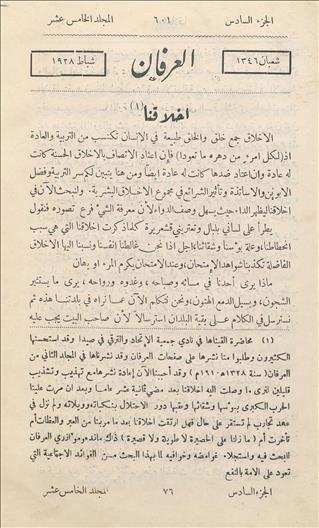 الجزء السادس ٦٠١ المجلد الخامس عشر
شعبان ١٣٤٦ العرفان شباط ١٩٢٨
اخلاقنا (١)
الاخلاق جمع خلق والخلق طبيعة في الانسان تكتسب من التربية والعادة
اذ (لكل امرئ من دهره ما تعودا) فإن اعتاد الاتصاف بالاخلاق الحسنة كانت
له عادة وان اعتاد ضدها كانت له عادة ايضاً ومن هنا يتبين لكم سر التربية وفضل
الابوين والاساتذة وتأثير الشرائع في مجموع الاخلاق البشرية. ولنبحث الآن في
اخلاقنا ليظهر الداء حيث يسهل وصف الدواء لأن معرفة الشيء فرع تصوره فنقول
يطرأ على لساني بلبال وتعتريني قشعريرة كلما ذكرت اخلاقنا التي هي سبب
انحطاطنا وعلة بؤسنا وشقائنا، اجل اذا نحن غالطنا انفسنا ونسبنا اليها الاخلاق
الفاضلة تكذبنا شواهد الامتحان، وعند الامتحان يكرم المرء او يهان
ماذا يرى أحدنا في مسائه وصباحه، وغدوه ورواحه، يرى ما يستثير
الشجون، ويسيل الدمع الهتون، ونحن نتكلم الآن عما نراه في بلدتنا هذه ثم
نسترسل في الكلام على بقية البلدان استرسالاً لأن صاحب البيت يجب عليه
(١) محاضرة القيناها في نادي جمعية الاتحاد والترقي في صيدا وقد استحسنها
الكثيرون وطلبوا منا نشرها على صفحات العرفان وقد نشرناها في المجلد الثاني من
العرفان (سنة ١٣٢٨ هـ ١٩١٠ م) وقد أحببنا الآن إعادة نشرها مع تهذيب وتشذيب
قليلين لنرى ما وصلت اليه اخلاقنا بعد مضي ثمانية عشر عاماً وبعد ان مرت علينا
الحرب الكبرى ببؤسها وشقائها وعقبها دور الاحتلال بنكباته وويلاته ولم نزل في
عهد تجارب لم تستقر على حال فهل ارتقت اخلاقنا بعد ما مر بنا من العبر والعظات أم
تأخرت أم (ما زلنا على الحصيرة لا طويلة ولا قصيرة) ذلك ما ندعو مؤازري العرفان
للبحث فيه واستجلاء غوامضه وخوافيه لما بهذا البحث من الفوائد الاجتماعية التي
تعود على الامة بالنفع
الجزء السادس ٧٦ المجلد الخامس عشر